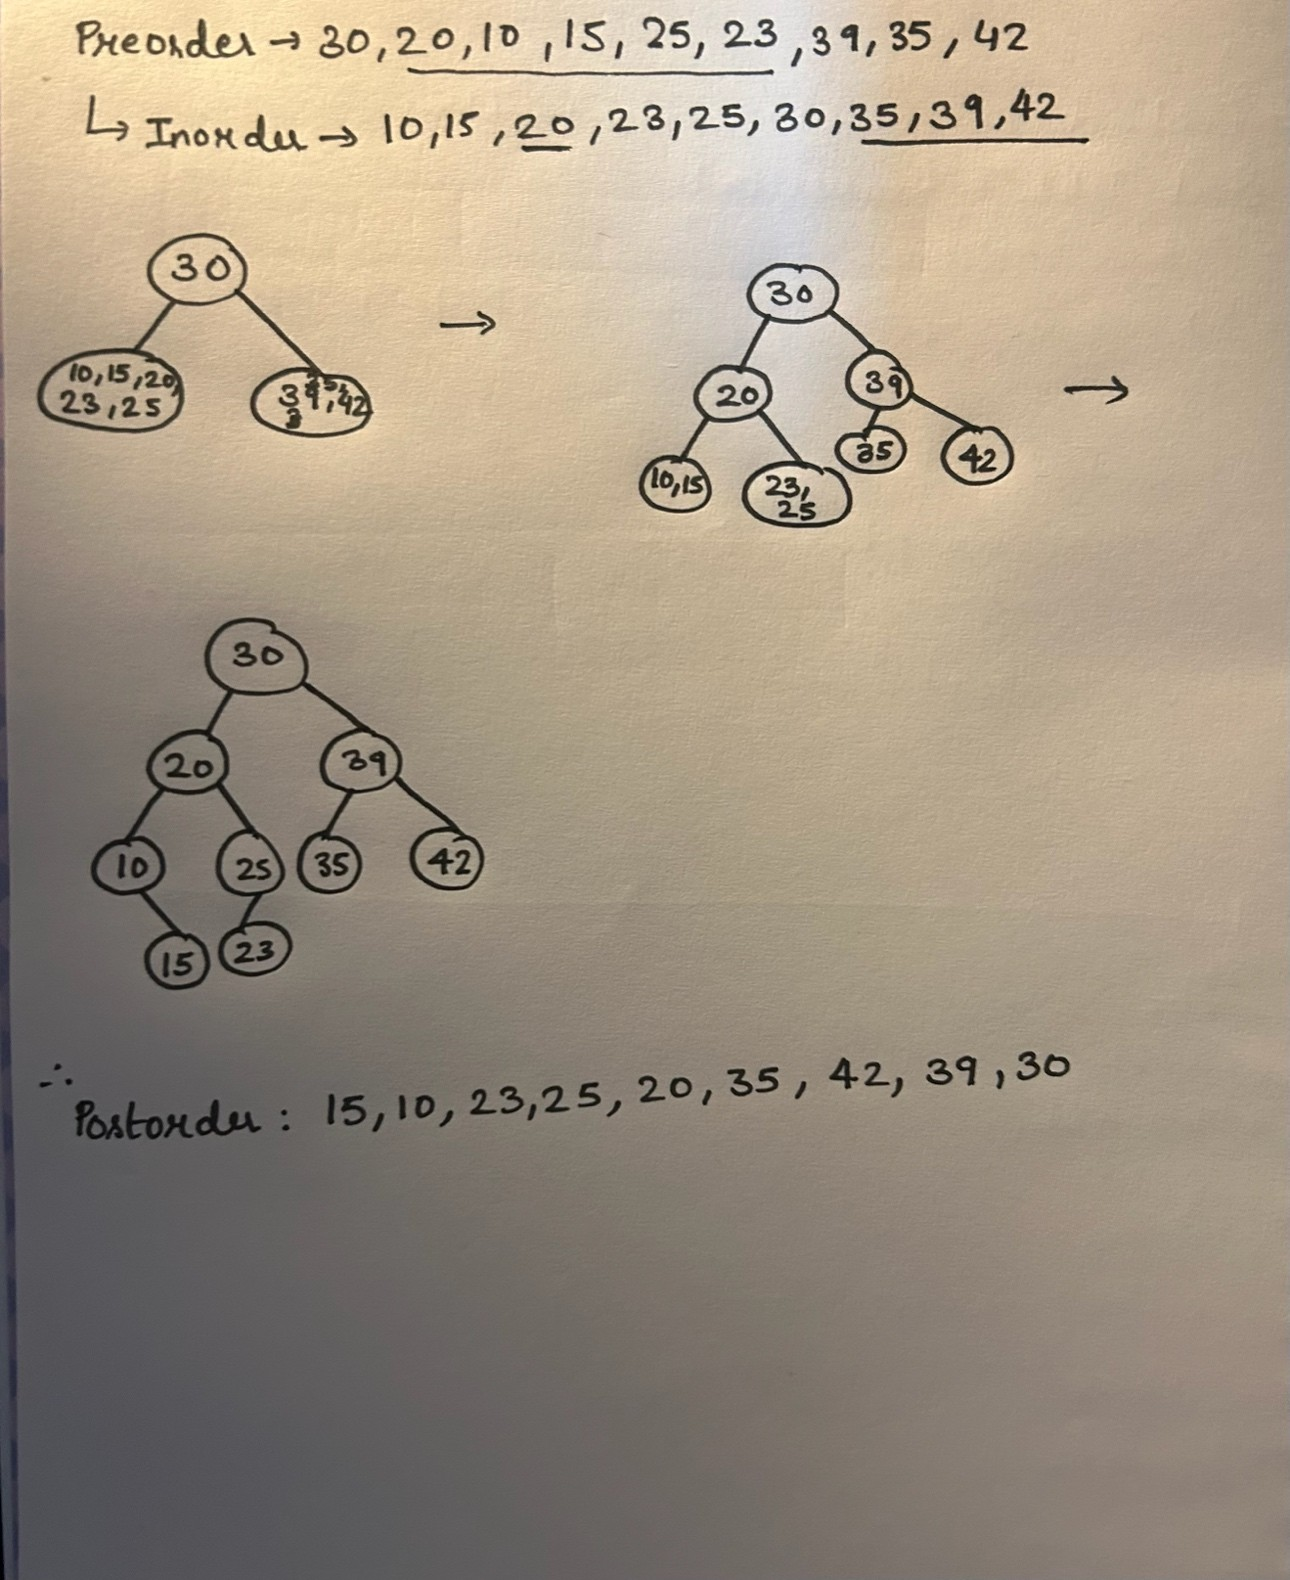 Preorder → 30, 20, 10, 15, 25, 23, 39, 35, 42
↳ Inorder → 10, 15, 20, 23, 25, 30, 35, 39, 42
30
→
30
10, 15, 20,
23, 25
42
20
39
→
10, 15
23,
25
35
42
30
20
39
10
25
35
42
15
23
∴
Postorder : 15, 10, 23, 25, 20, 35, 42, 39, 30